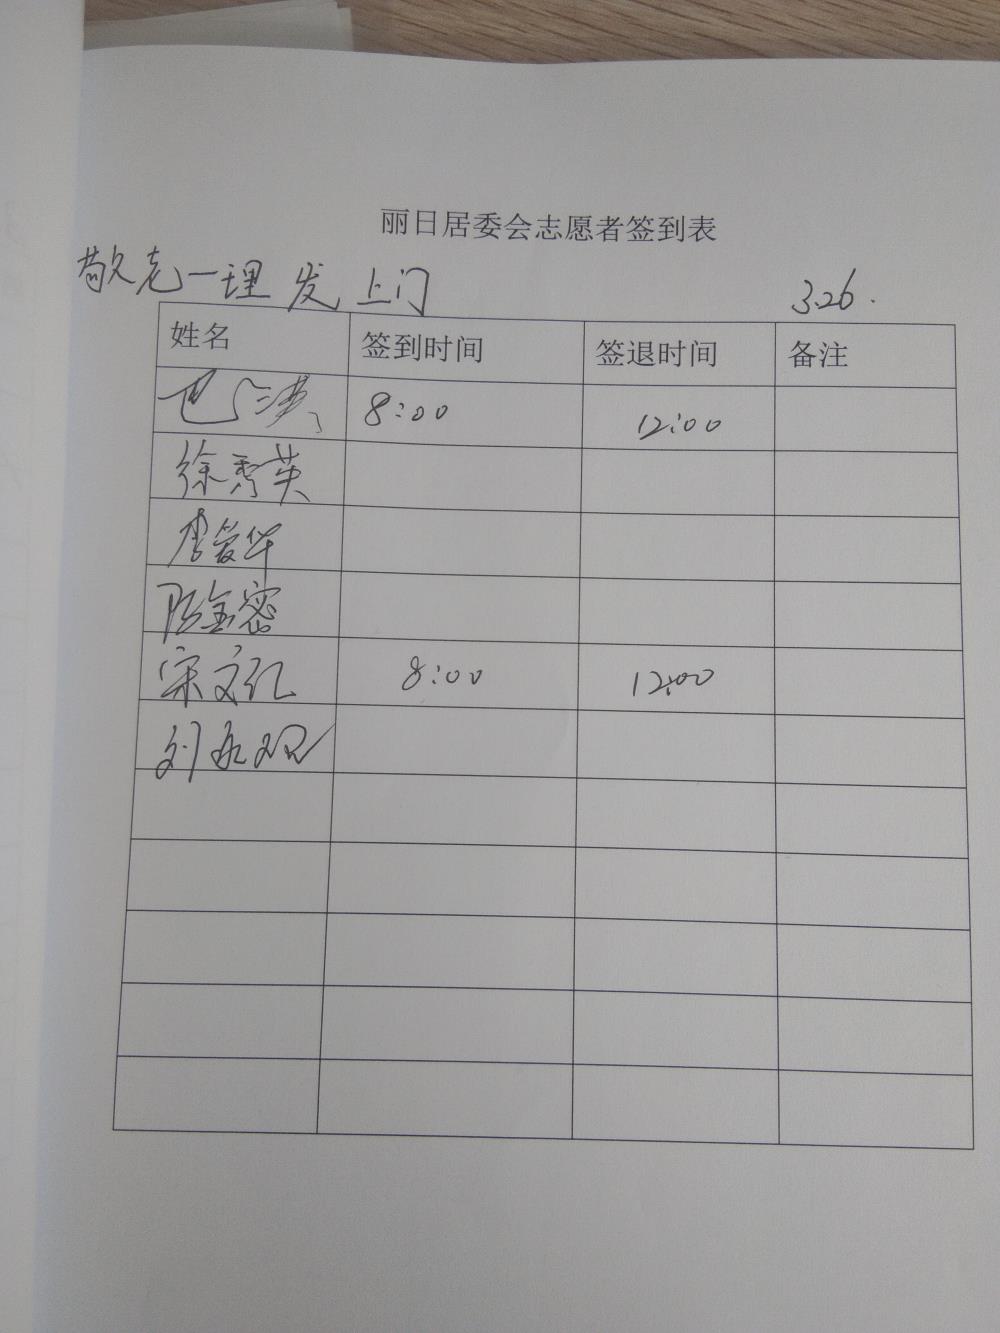 丽日居委会志愿者签到表
敬老一理发 上门 3.26.
姓名 签到时间 签退时间 备注
8:00 12:00
徐秀英
李爱华
陈金密
宋文红 8:00 12:00
刘